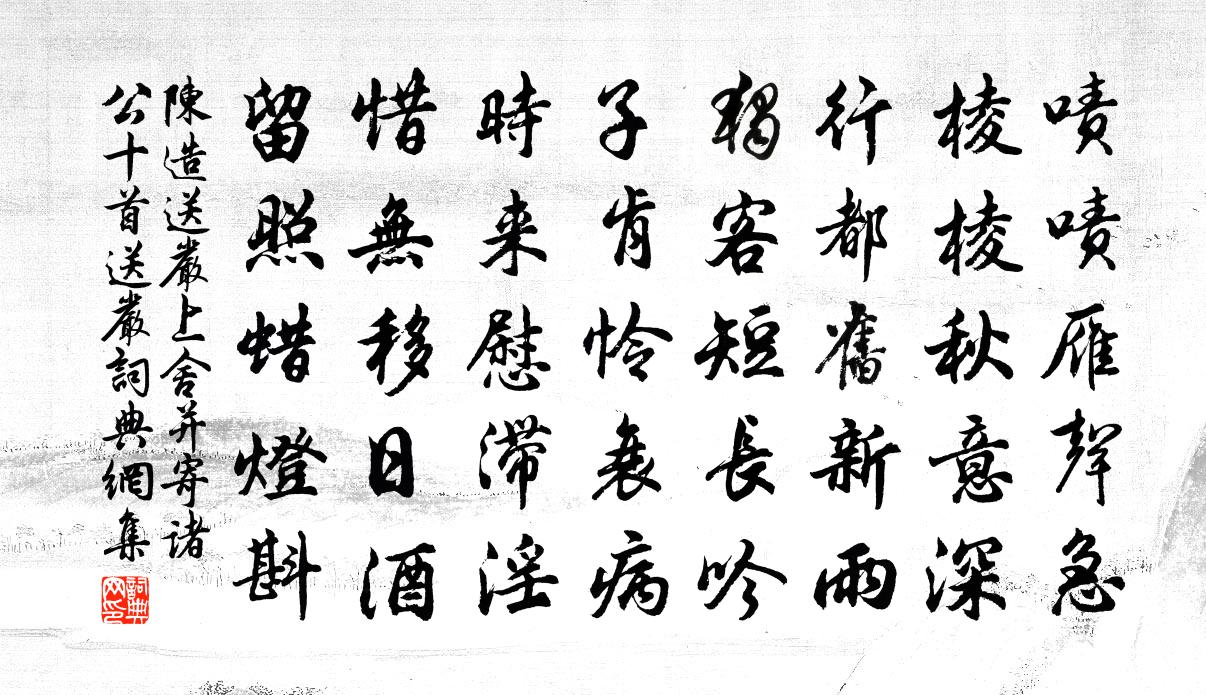 嘖嘖雁聲急
棱棱秋意深
行都舊新雨
獨客短長吟
子肯怜衰病
時来慰滯淫
惜無移日酒
留照蜡燈斟
陳造送嚴上舍并寄諸
公十首送嚴詞典網集
詞典
网印